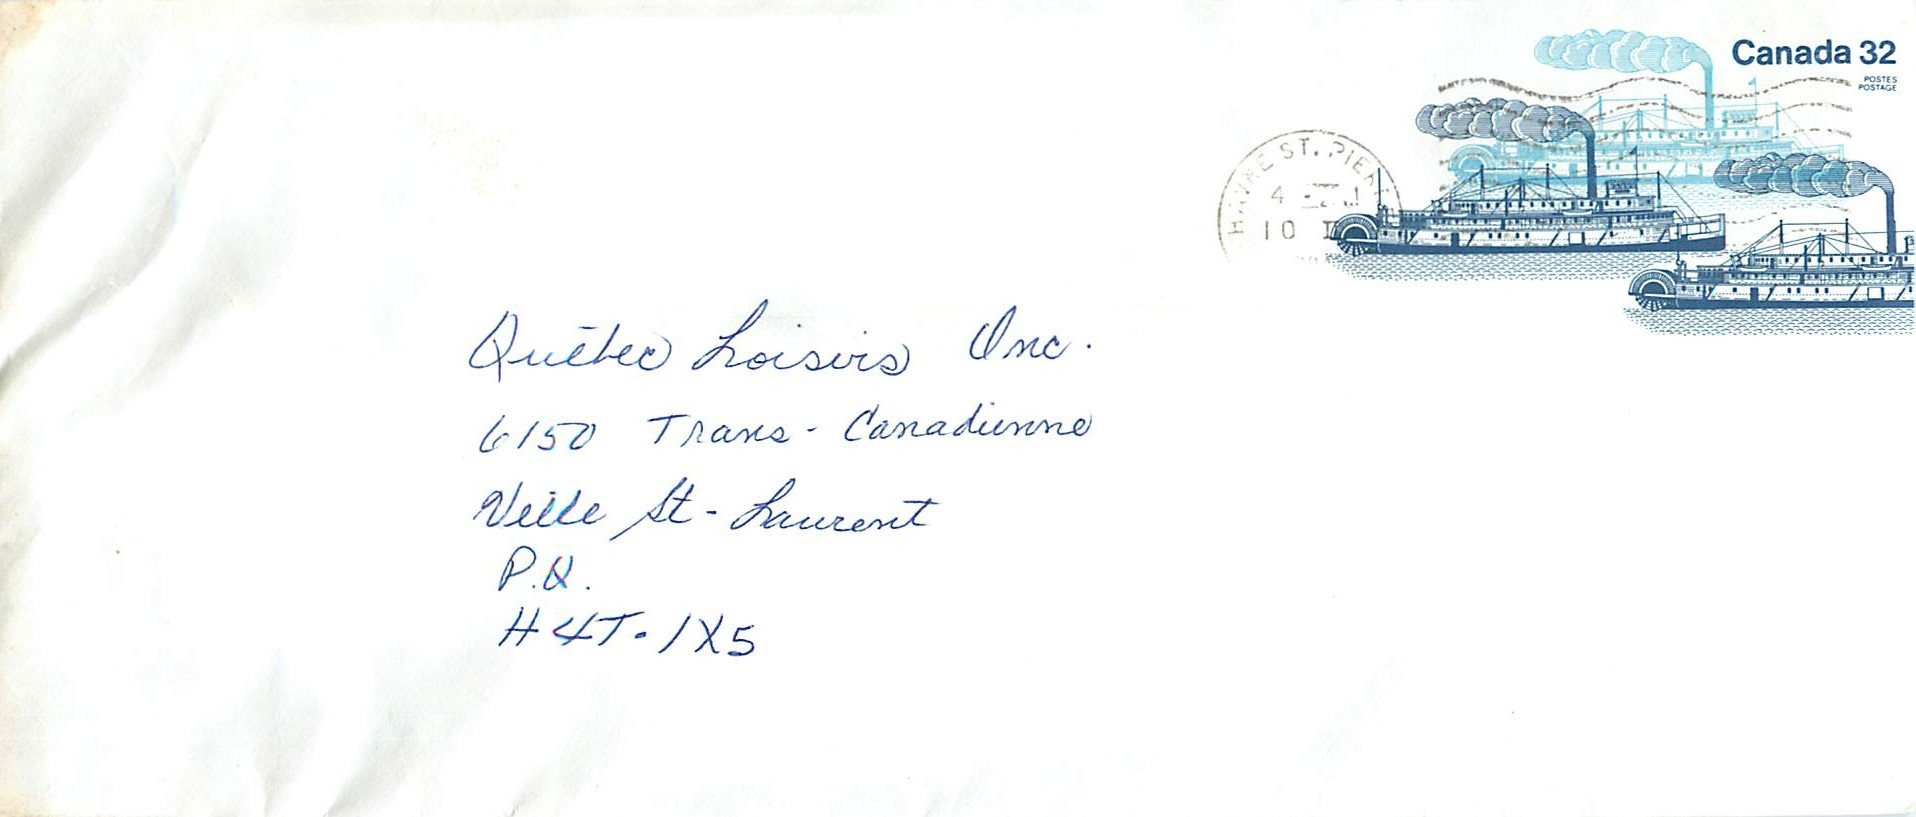 Canada 32
POSTES
POSTAGE
HAVRE ST. PIER
4
10
Québec Loisirs Inc.
6150 Trans-Canadienne
Ville St-Laurent
P.Q.
H4T-1X5